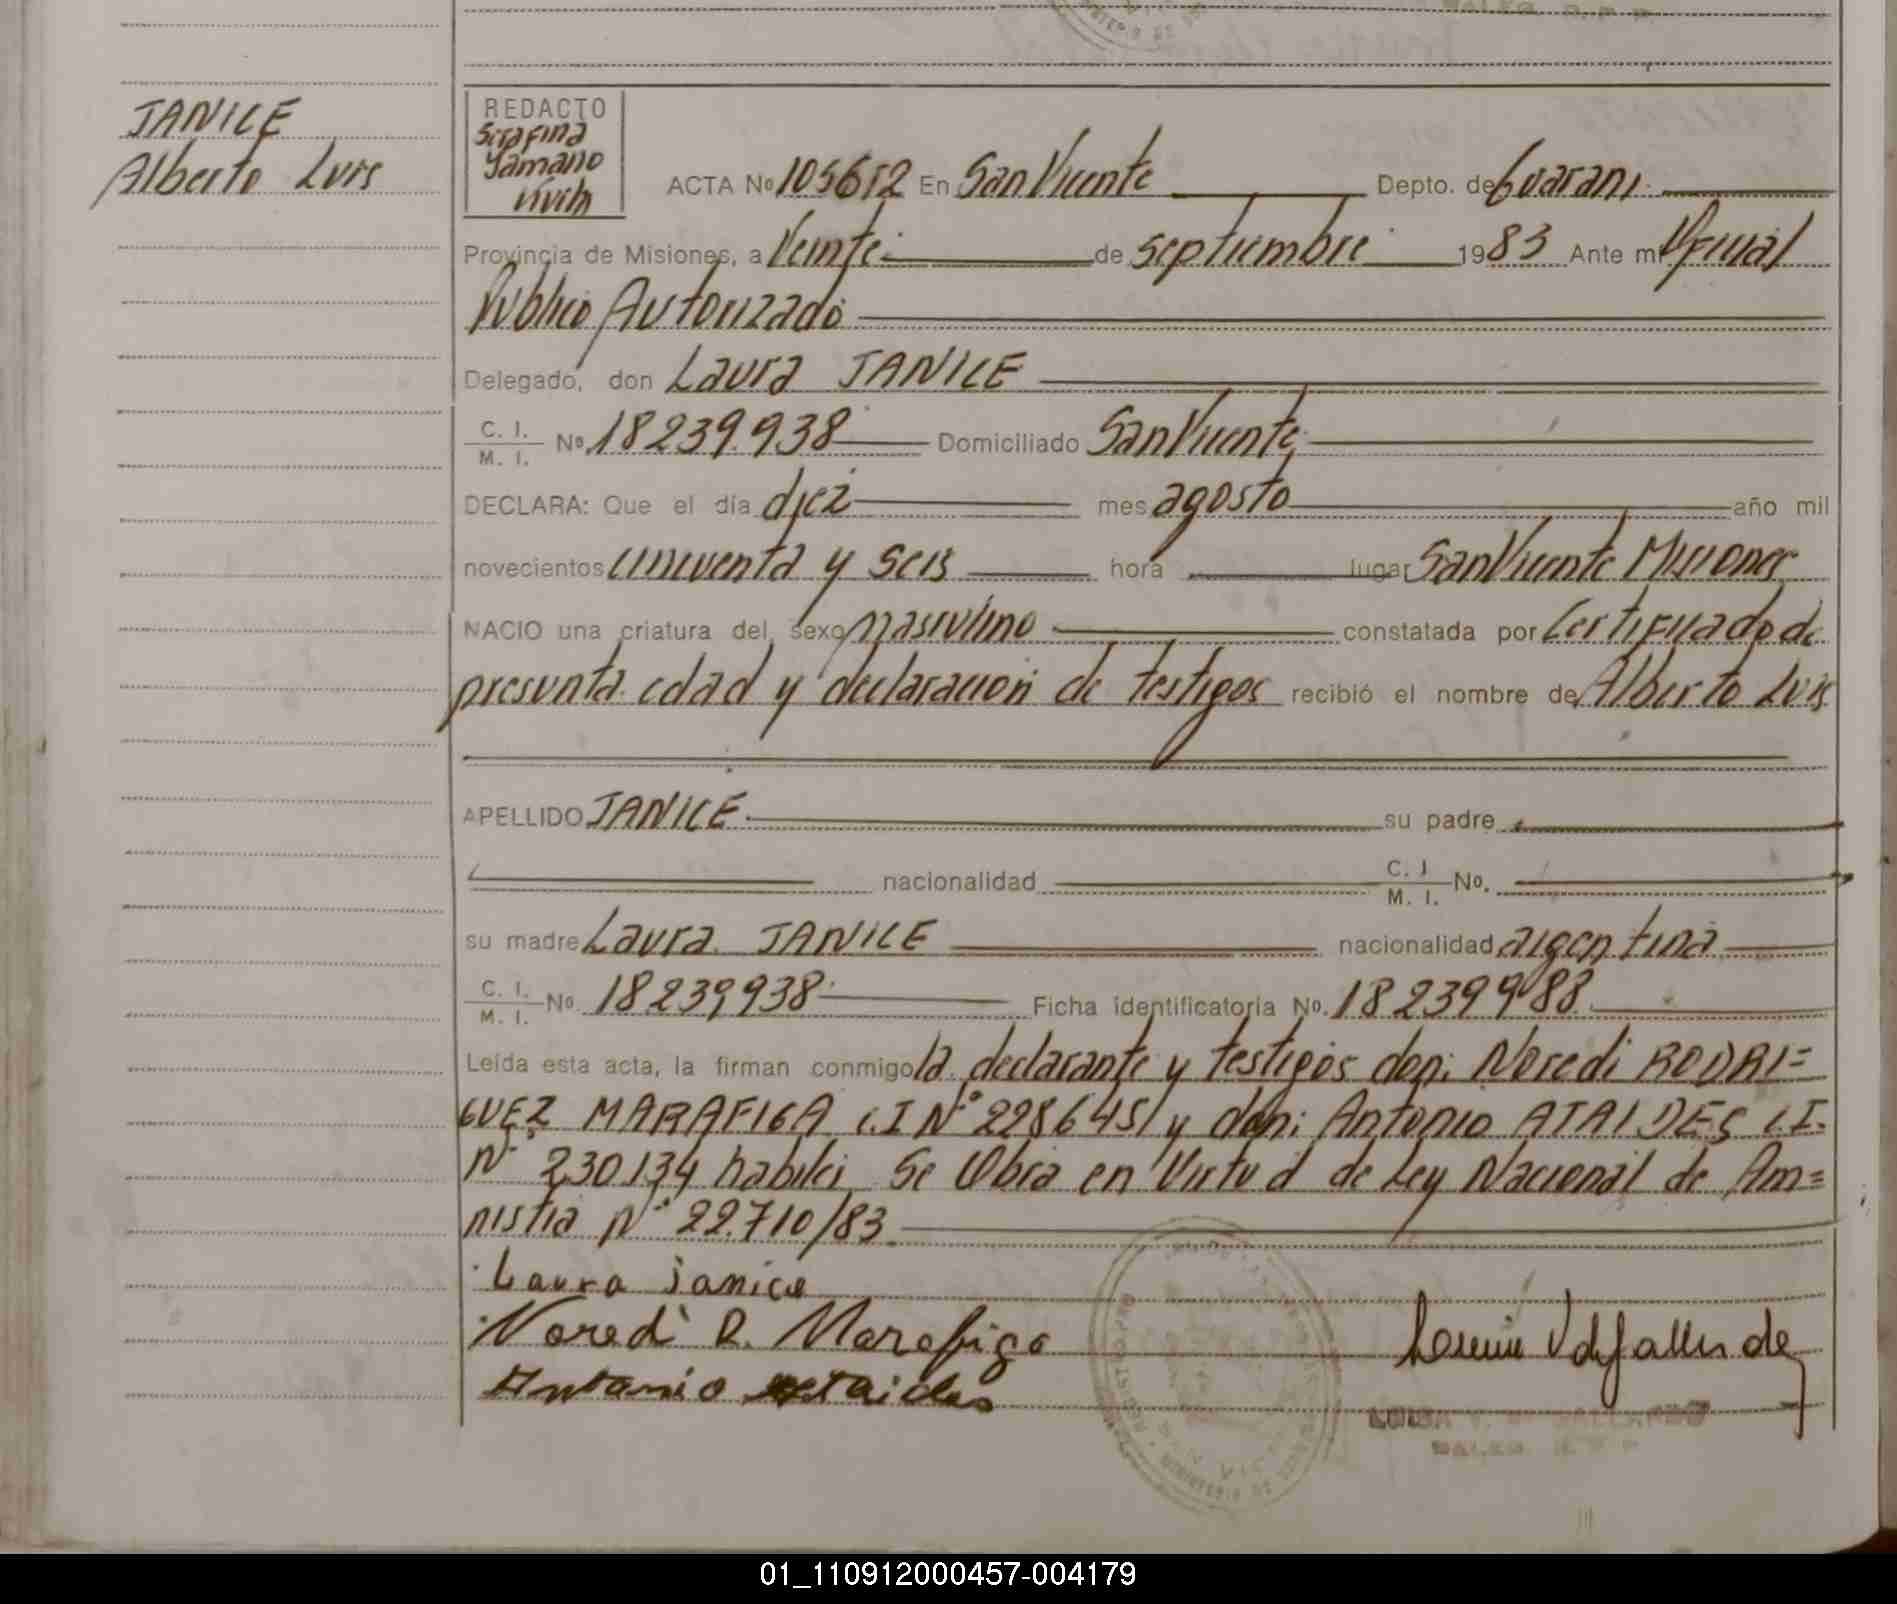 JANICE
Alberto Luis
REDACTO
Serafina
Yamano
ACTA No 105612 En San Vicente Depto. de Guarani
Provincia de Misiones, a Veinte de septiembre 1983 Ante mi Oficial
Publico Autorizado
Delegado, don Laura JANICE
C. I.
M. I. No. 18239.938 Domiciliado San Vicente
DECLARA: Que el día diez mes agosto año mil
novecientos cincuenta y seis hora lugar San Vicente Misiones
NACIO una criatura del sexo masculino constatada por Certificado de
presunta edad y declaracion de testigos recibió el nombre de Alberto Luis
APELLIDO JANICE su padre
nacionalidad C. I
M. I. No.
su madre Laura JANICE nacionalidad argentina
C. I.
M. I. No. 18.239,938 Ficha identificatoria No. 18239988
Leída esta acta, la firman conmigo la declarante y testigos don: Noredi RODRI=
GUEZ MARAFIGA C.I N° 228645 y don: Antonio ATAIDES C.I.
N° 230.134 habiles Se Obra en Virtud de Ley Nacional de Am=
nistia N° 22.710/83
Laura janice
Noredi R. Marafiga
Antonio ataides
01_110912000457-004179